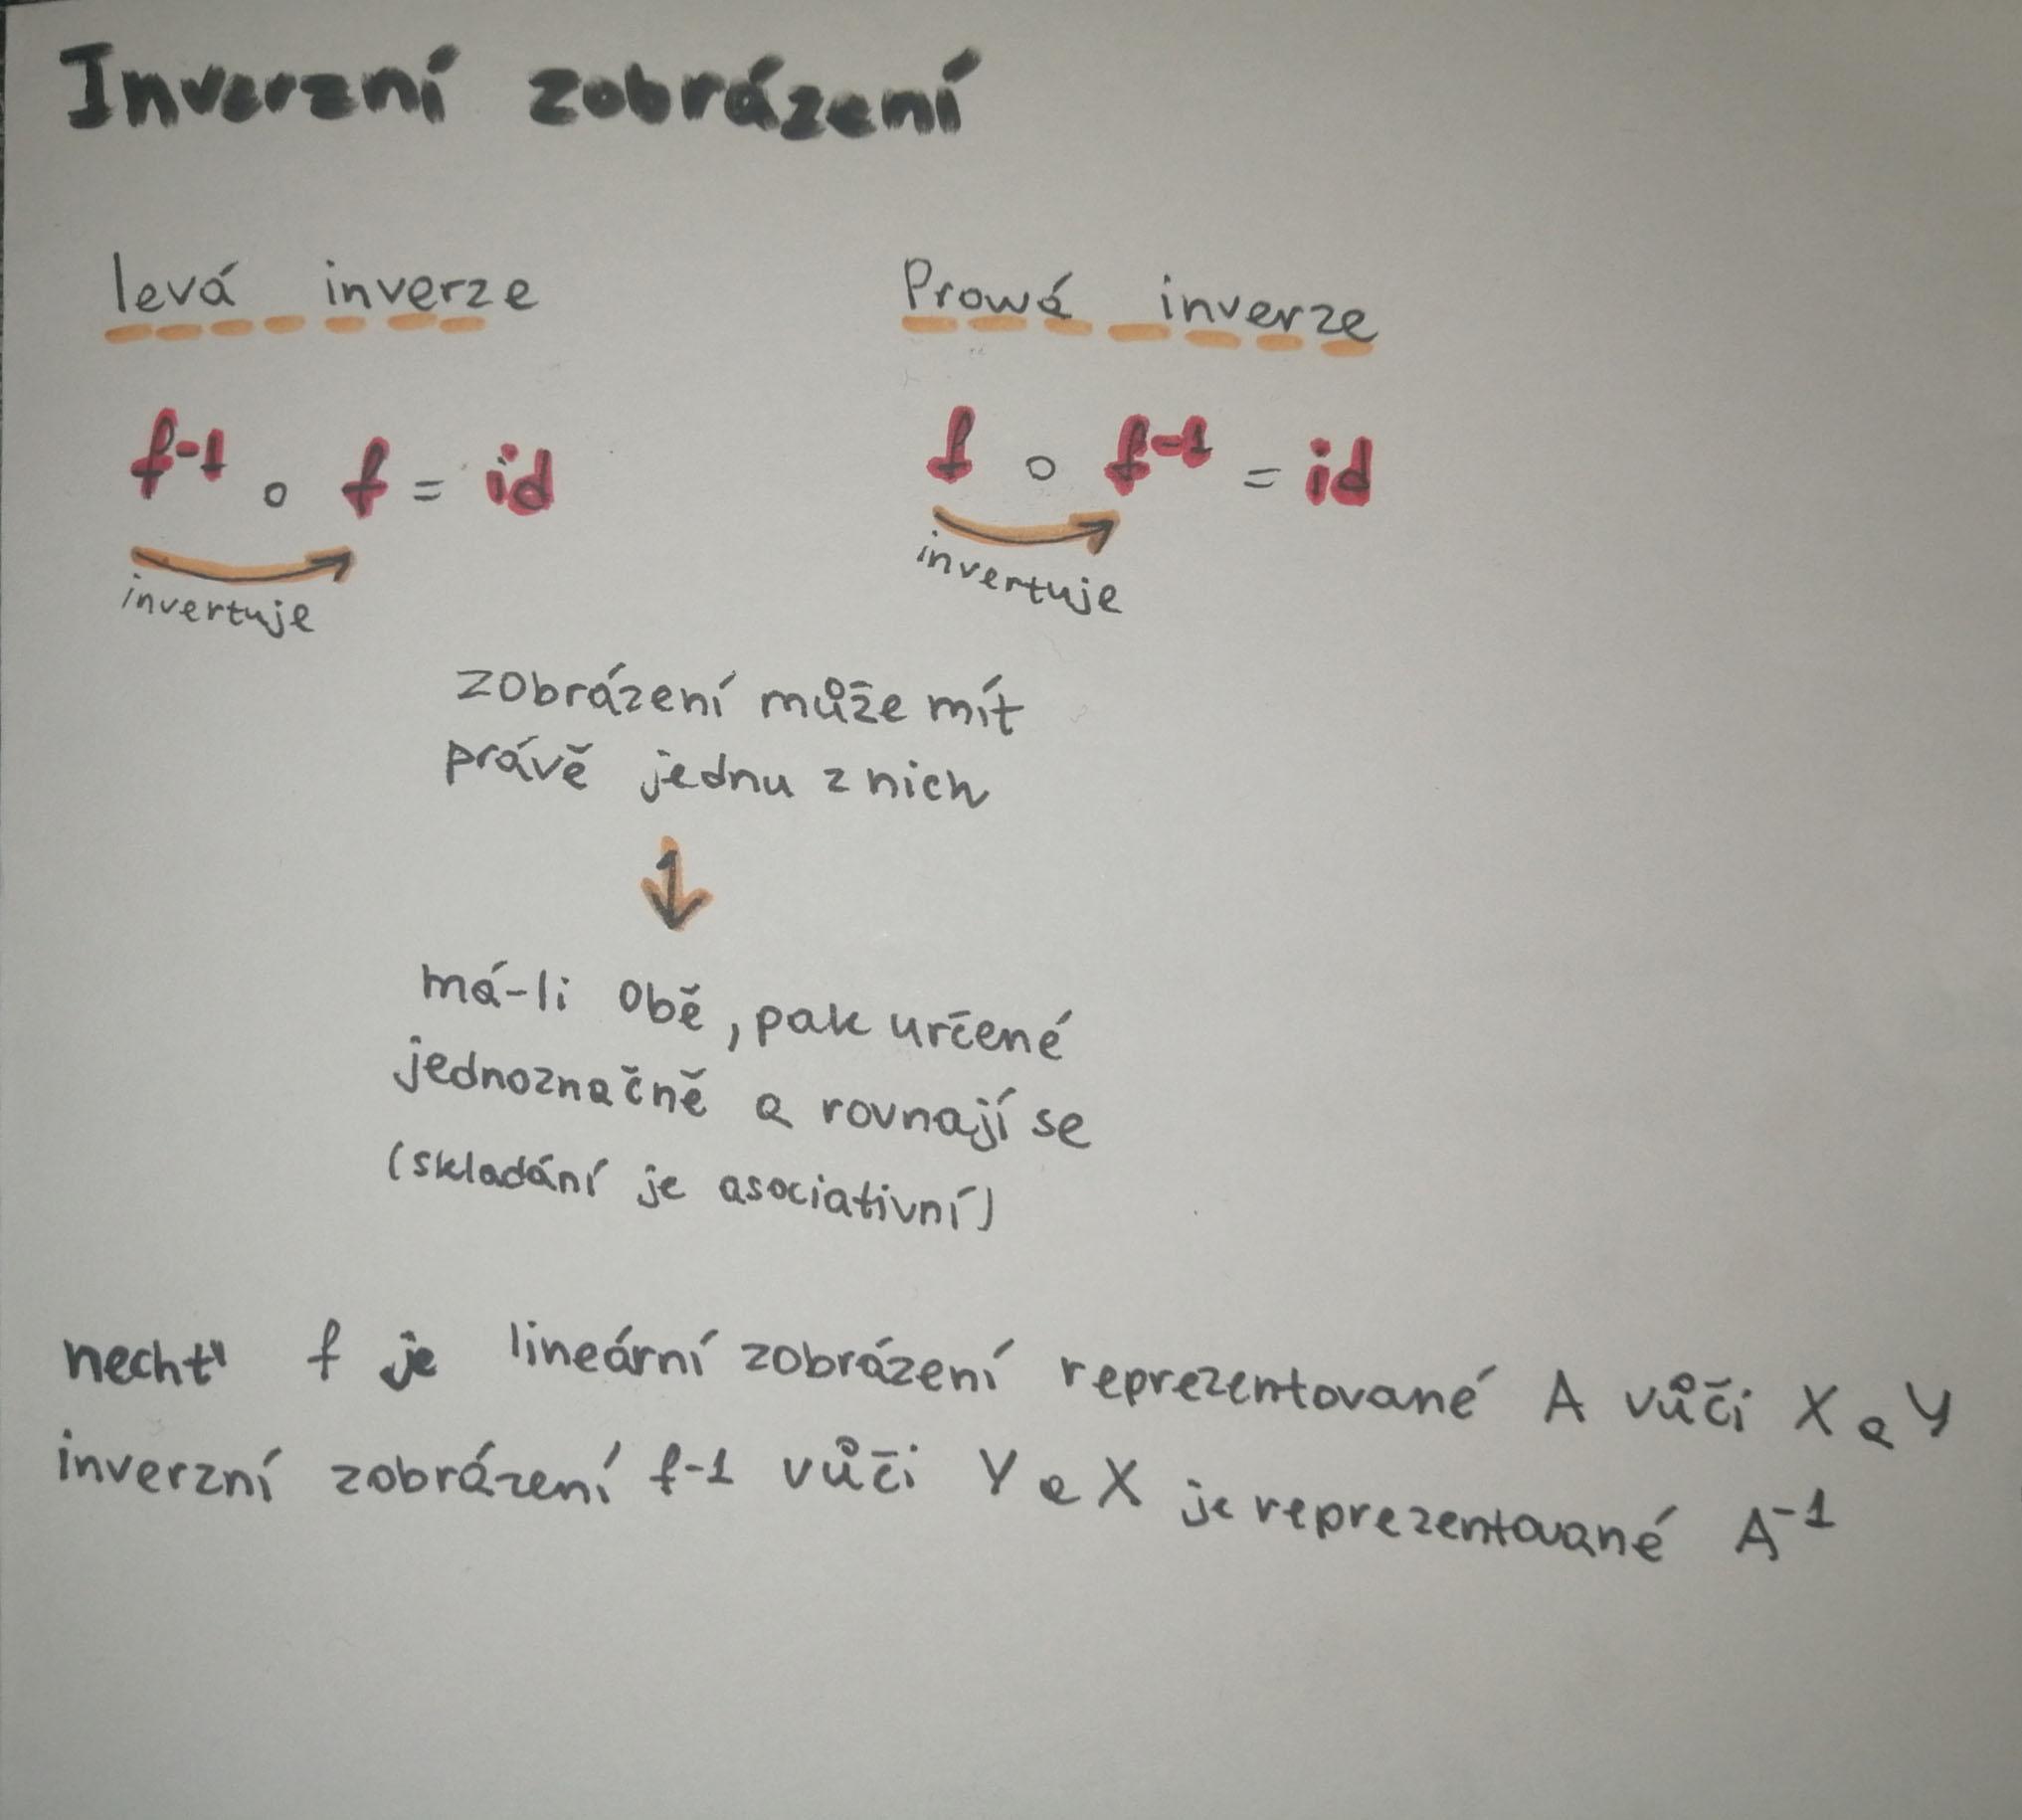 Inverzní zobrázení
levá inverze
Pravá inverze
f-1 ∘ f = id
f ∘ f-1 = id
invertuje
invertuje
zobrázení může mít
právě jednu z nich
má-li obě, pak určené
jednoznačně a rovnají se
(skladání je asociativní)
nechť f je lineární zobrázení reprezentované A vůči X a Y
inverzní zobrázení f-1 vůči Y a X je reprezentované A⁻¹